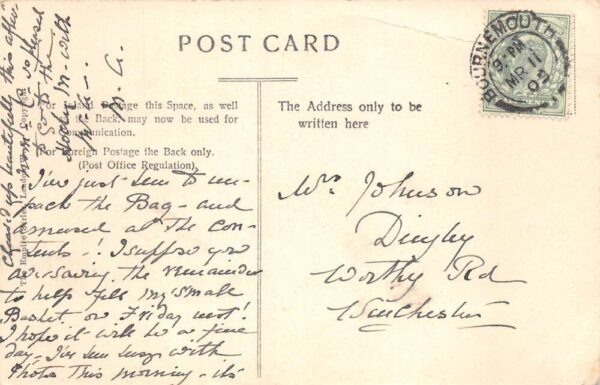 POST CARD
For Inland Postage this Space, as well
the Back, may now be used for
Communication.
For Foreign Postage the Back only.
(Post Office Regulation).
The Address only to be
written here
BOURNEMOUTH
9. PM
MR 11
I've just been to un-
pack the Bag - and
amused at the Con-
tents -! I suppose you
are saving the remainder
to help fill my small
Basket on Friday next!
I hope it will be a fine
day - I've been busy with
Photos this morning - it's
cleared up beautifully this after
noon so pleased
with
Mrs Johnson
Dingley
Worthy Rd
Winchester